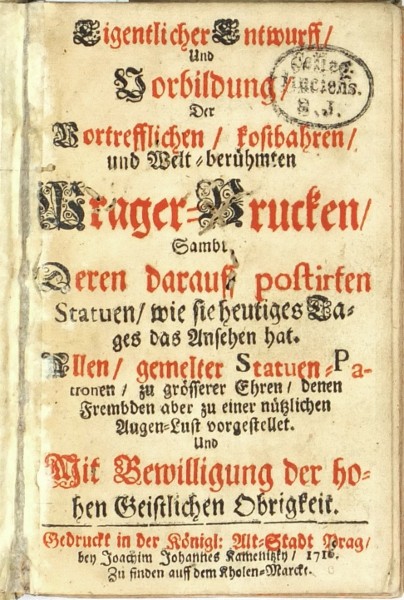 Eigentlicher Entwurff/
Und
Vorbildung/
Der
Vortrefflichen / kostbahren/
und Welt-berühmten
Prager-Brucken/
Sambt
Deren darauff postirten
Statuen/ wie sie heutiges Ta-
ges das Ansehen hat.
Allen/ gemelter Statuen-Pa-
tronen / zu grösserer Ehren/ denen
Frembden aber zu einer nützlichen
Augen-Lust vorgestellet.
Und
Mit Bewilligung der ho-
hen Geistlichen Obrigkeit.
Gedruckt in der Königl: Alt-Stadt Prag/
bey Joachim Johannes Kamenitzky/ 1716.
Zu finden auff dem Kholen-Marckt.
S.J.